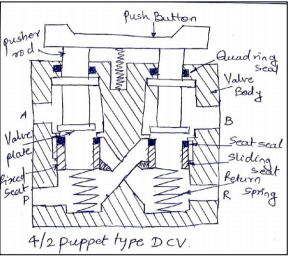 Push Button
pusher
rod
Quadring
seal
Valve
Body
A
B
Valve
plate
Seat seal
Fixed
seat
Sliding
seat
P
R
Return
Spring
4/2 puppet type DCV.